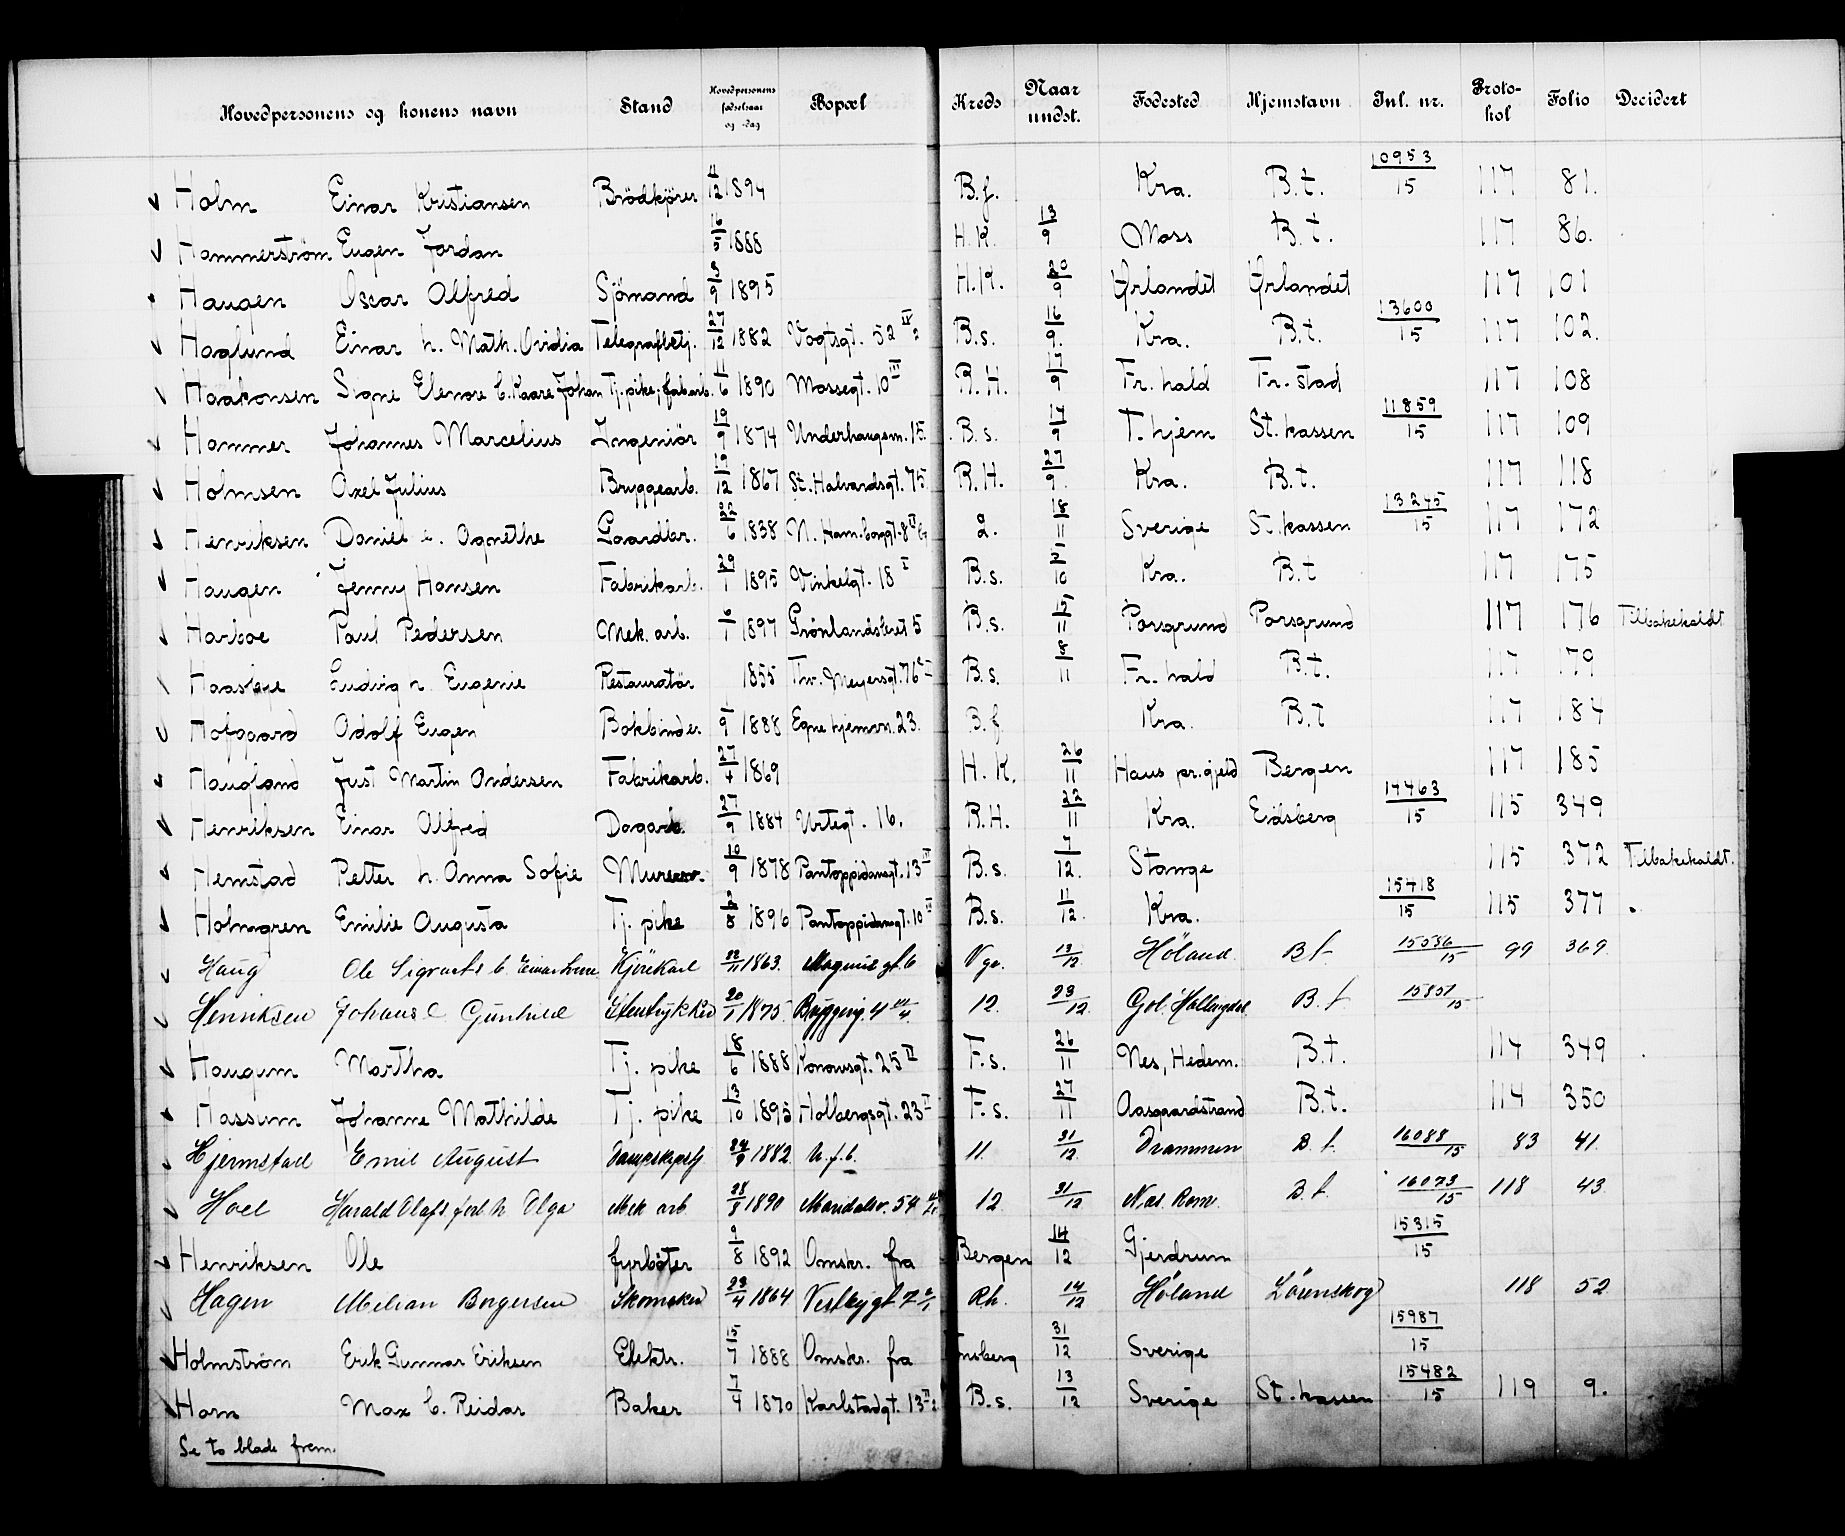 Hovedpersonens og konens navn Stand Hovedpersonens fødselsaar og -dag Bopæl Kreds Naar undst. Fødested Hjemstavn Jnl. nr. Proto-kol Folio Decidert
Holm Einar Kristiansen Brödkjörer 4/12 1894 B.f. Kra. B.t. 10953/15 117 81.
Hammerström Eugen Jordan 16/5 1888 H.K. 13/9 Moss B.t. 117 86.
Haugen Oscar Alfred Sjömand 3/9 1895 H.K. 20/9 Ørlandet Ørlandet 117 101
Haglund Einar h. Math. Ovidia Telegrafbetj. 27/12 1882 Vogtsgt. 52 IV 2 B.s. 16/9. Kra. B.t. 13600/15 117 102.
Haakonsen Signe Elenore b. Kaare Johan Tj. pike; fabarb. 11/6 1890 Mossegt. 10 III R.H. 17/9 Fr. hald Fr. stad 117 108
Hammer Johannes Marcelius Ingeniör 19/9 1874 Underhaugsvn. 15. B.s. 17/9 T. hjem St. kassen 11859/15 117 109
Holmsen Axel Julius Bryggearb. 19/12 1867 St. Halvardsgt. 75. R.H. 27/9. Kra. B.t. 117 118
Henriksen Daniel e. Agnethe Gaardbr. 22/6 1838 N. Ham.borggt. 8 II 2. 18/11 Sverige St. kassen 13245/15 117 172
Haugen Jenny Hansen Fabrikarb. 29/1 1895 Vinkelgt. 18 I B.s. 2/10 Kra. B.t 117 175
Harboe Paul Pedersen Mek. arb. 6/1 1897 Grönlandsleret 5 B.s. 15/11 Porsgrund Porsgrund 117 176 Tilbakekaldt
Ludvig h. Eugenie Restauratör 1855 Thv. Meyersgt. 76 B.s. 8/11 Fr. hald B.t. 117 179
Hofgaard Adolf Eugen Bokbinder 1/9 1888 Egne hjemvn. 23. B.f Kra. B.t 117 184
Haugland Just Martin Andersen Fabrikarb. 27/4 1869 H.K. 26/11 Haus pr. gjeld Bergen 117 185
Henriksen Einar Alfred Dagarb. 27/9 1884 Urtegt. 16. R.H. 22/11 Kra. Eidsberg 14463/15 115 349
Hemstad Petter h. Anna Sofie Murer 10/9 1878 Pantoppidansgt. 13 II B.s. 7/12. Stange 115 372 Tilbakekaldt.
Holmgren Emilie Augusta Tj. pike 2/8 1896 Pantoppidansgt. 10 II B.s. 11/12. Kra. 15418/15 115 377
Haug Ole Sigvarts b. Kjörekarl 22/11 1863. Magnus gt. 6 V ga. 13/12 Höland B t 15586/15 99 369.
Henriksen Johans e Gunhild 20/1 1875. 12. 23/12. Gol Hallingdal B. t 15851/15
Haugum Martha Tj. pike 18/6 1888 Konowsgt. 25 II F.s. 26/11 Nes, Hedem. B.t. 114 349
Hassum Johanne Mathilde Tj. pike 13/10 1895 Holbergsgt. 23 II F.s. 27/11 Aasgaardstrand B.t. 114 350
Hjermstad Emil August 24/9 1882. U.f.b. 11. 31/12. Drammen B.t. 16088/15 83 41.
Hoel Harald Olafs ferl h Olga Mek arb 28/8 1890 Maridalsv. 54 12 31/12 Næs. Rom. B.t. 16073/15 118 43
Henriksen Ole fyrböter 9/8 1892 Omskr. fra Bergen 14/12 Gjerdrum 15315/15
Hagen Melian Borgersen Skomaker 23/4 1864 Vestbygt 7 Rh. 14/12 Höland Lörenskog 118 52
Holmström Erik Gunnar Eriksen Elektr. 15/7 1888 Omskr. fra Tönsberg 31/12 Sverige 15987/15
Horn Max b. Reidar Baker 7/4 1870 Karlstadgt. 13 II B.s. 13/12 Sverige St. kassen 15482/15 119 9.
Se to blade frem.